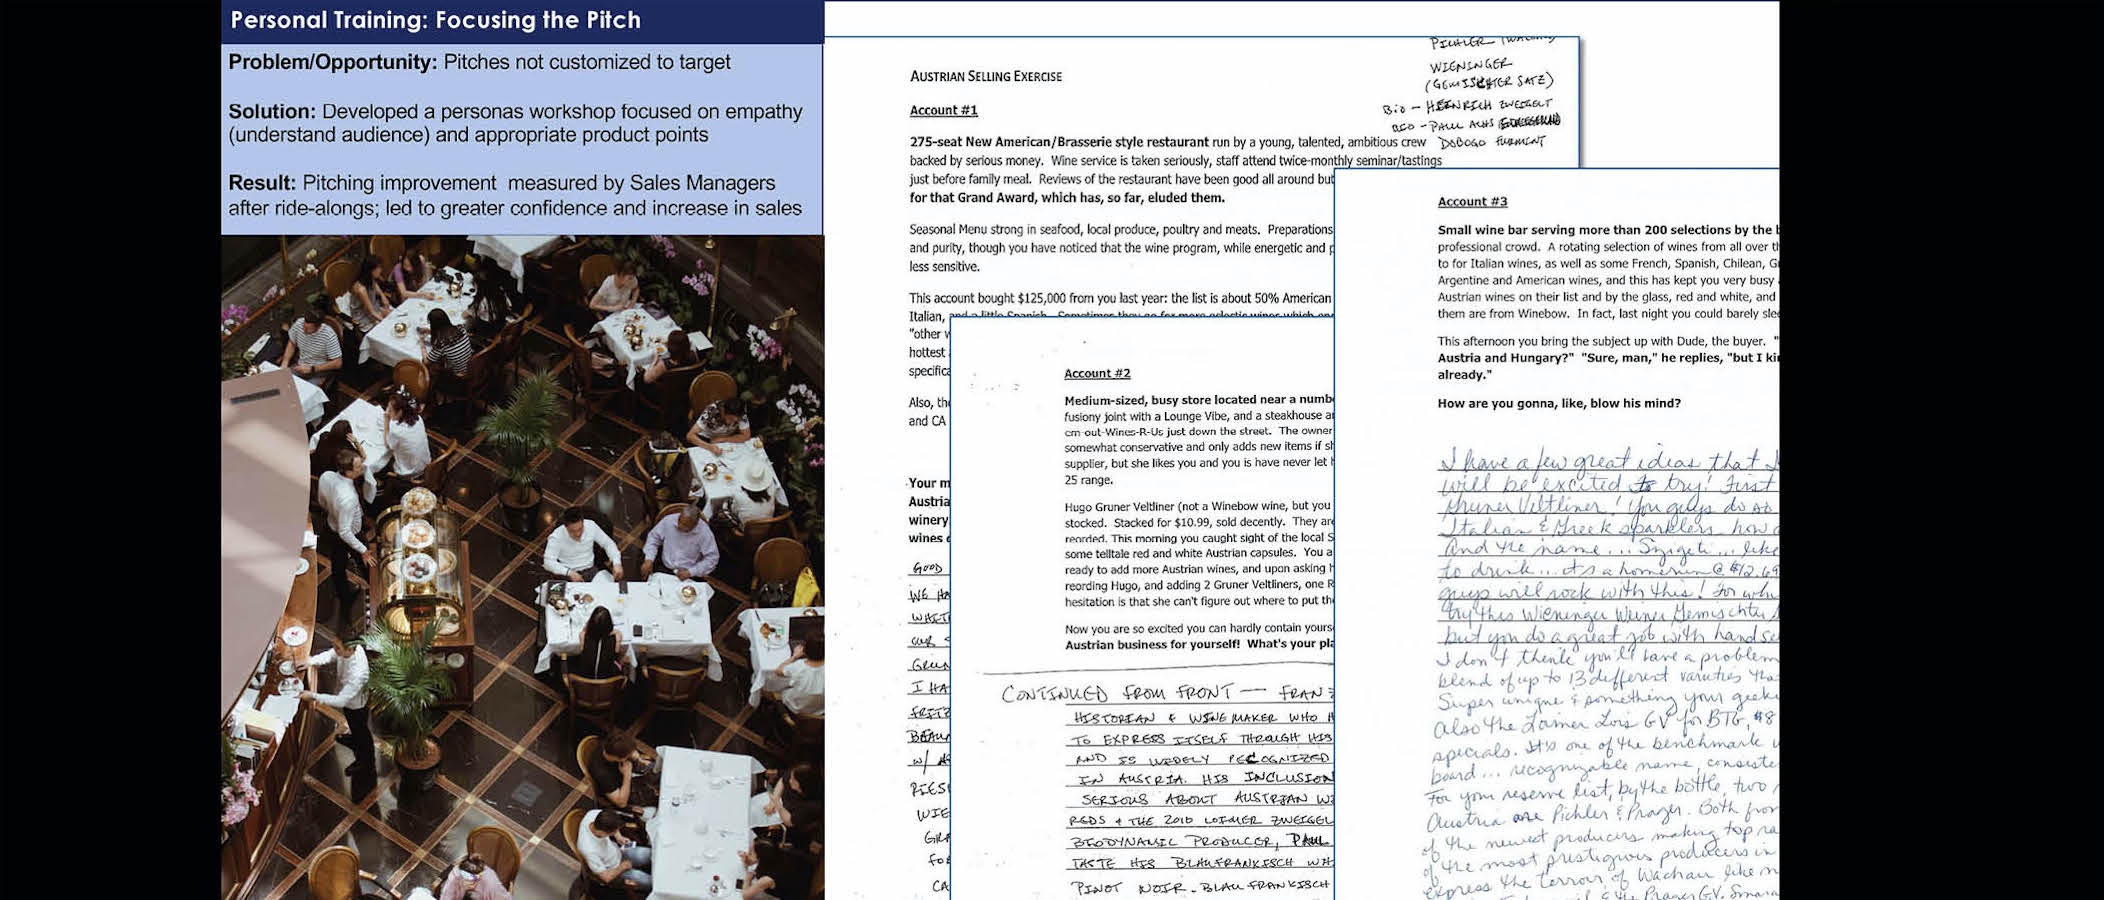 Personal Training: Focusing the Pitch
Problem/Opportunity: Pitches not customized to target
Solution: Developed a personas workshop focused on empathy
(understand audience) and appropriate product points
Result: Pitching improvement measured by Sales Managers
after ride-alongs; led to greater confidence and increase in sales
WIENINGER
(GEMISCHTER SATZ)
BIO - HEINRICH ZWEIGELT
BIO - PAUL ACHS
DOBOGO FURMINT
AUSTRIAN SELLING EXERCISE
Account #1
275-seat New American/Brasserie style restaurant run by a young, talented, ambitious crew
backed by serious money. Wine service is taken seriously, staff attend twice-monthly seminar/tastings
just before family meal. Reviews of the restaurant have been good all around but
for that Grand Award, which has, so far, eluded them.
Seasonal Menu strong in seafood, local produce, poultry and meats. Preparations
and purity, though you have noticed that the wine program, while energetic and
less sensitive.
This account bought $125,000 from you last year: the list is about 50% American
Italian, and a little Spanish. Sometimes they go for more eclectic wines which
"other
hottest
specifica
Also, the
and CA
Your m
Austria
winery
wines
GOOD
WE HA
WHITE
OUR
GRUN
I HA
FRITZ
BEAU
W/
RIES
WIE
GRA
FO
CA
Account #2
Medium-sized, busy store located near a numb
fusiony joint with a Lounge Vibe, and a steakhouse
em-out-Wines-R-Us just down the street. The owner
somewhat conservative and only adds new items if s
supplier, but she likes you and you is have never let
25 range.
Hugo Gruner Veltliner (not a Winebow wine, but you
stocked. Stacked for $10.99, sold decently. They are
reorded. This morning you caught sight of the local S
some telltale red and white Austrian capsules. You a
ready to add more Austrian wines, and upon asking
reording Hugo, and adding 2 Gruner Veltliners, one R
hesitation is that she can't figure out where to put th
Now you are so excited you can hardly contain yours
Austrian business for yourself! What's your pla
CONTINUED FROM FRONT — FRANZ
HISTORIAN & WINEMAKER WHO H
TO EXPRESS ITSELF THROUGH HIS
AND IS WIDELY RECOGNIZED
IN AUSTRIA. HIS INCLUSION
SERIOUS ABOUT AUSTRIAN WI
REDS & THE 2010 LOIMER ZWEIGEL
BIODYNAMIC PRODUCER, PAUL
TASTE HIS BLAUFRANKISCH WH
PINOT NOIR. BLAUFRANKISCH
Account #3
Small wine bar serving more than 200 selections by the b
professional crowd. A rotating selection of wines from all over th
to for Italian wines, as well as some French, Spanish, Chilean, G
Argentine and American wines, and this has kept you very busy
Austrian wines on their list and by the glass, red and white, and
them are from Winebow. In fact, last night you could barely slee
This afternoon you bring the subject up with Dude, the buyer. "
Austria and Hungary?" "Sure, man," he replies, "but I ki
already."
How are you gonna, like, blow his mind?
I have a few great ideas that I
will be excited to try! First
Gruner Veltliner! You guys do so
Italian & Greek sparklers, how a
And the name... Szigeti... like
to drink... it's a homerun @ $12.69
guys will rock with this! For whi
try this Wieninger Wiener Gemischter S
but you do a great job with hand se
I don't think you'll have a problem
blend of up to 13 different varieties tha
Super unique & something your geeky
Also the Loimer Lois GV for BTG, $8
specials. It's one of the benchmark
board... recognizable name, consiste
For your reserve list, by the bottle, two
Austria are Pichler & Prager. Both from
of the newest producers making top ra
of the most prestigious producers in
express the terroir of Wachau like n
& the Prager GV. Smara